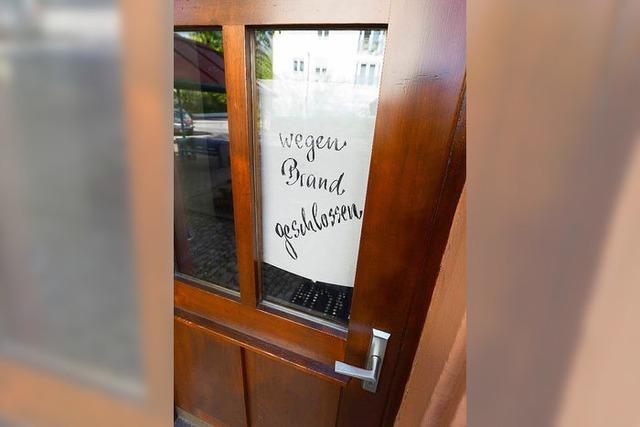 wegen
Brand
geschlossen